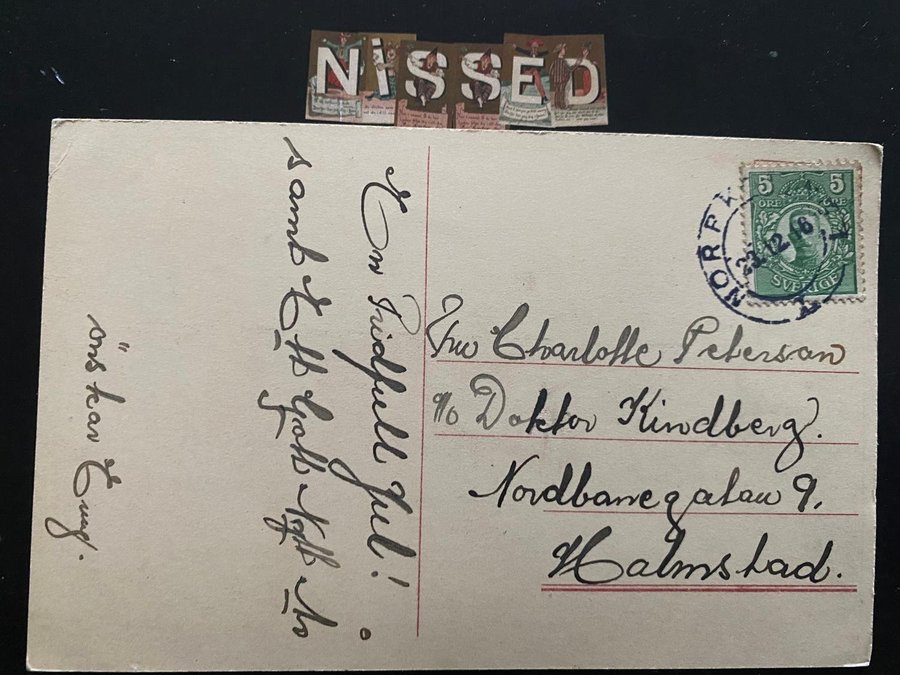 NISSED
En Fridfull Jul!
samt Ett Gott Nytt År
önskar
5 5
ÖRE ÖRE
SVERIGE
23.12.16
Fru Charlotte Peterson
c/o Doktor Kindberg.
Nordbanegatan 9.
Halmstad.